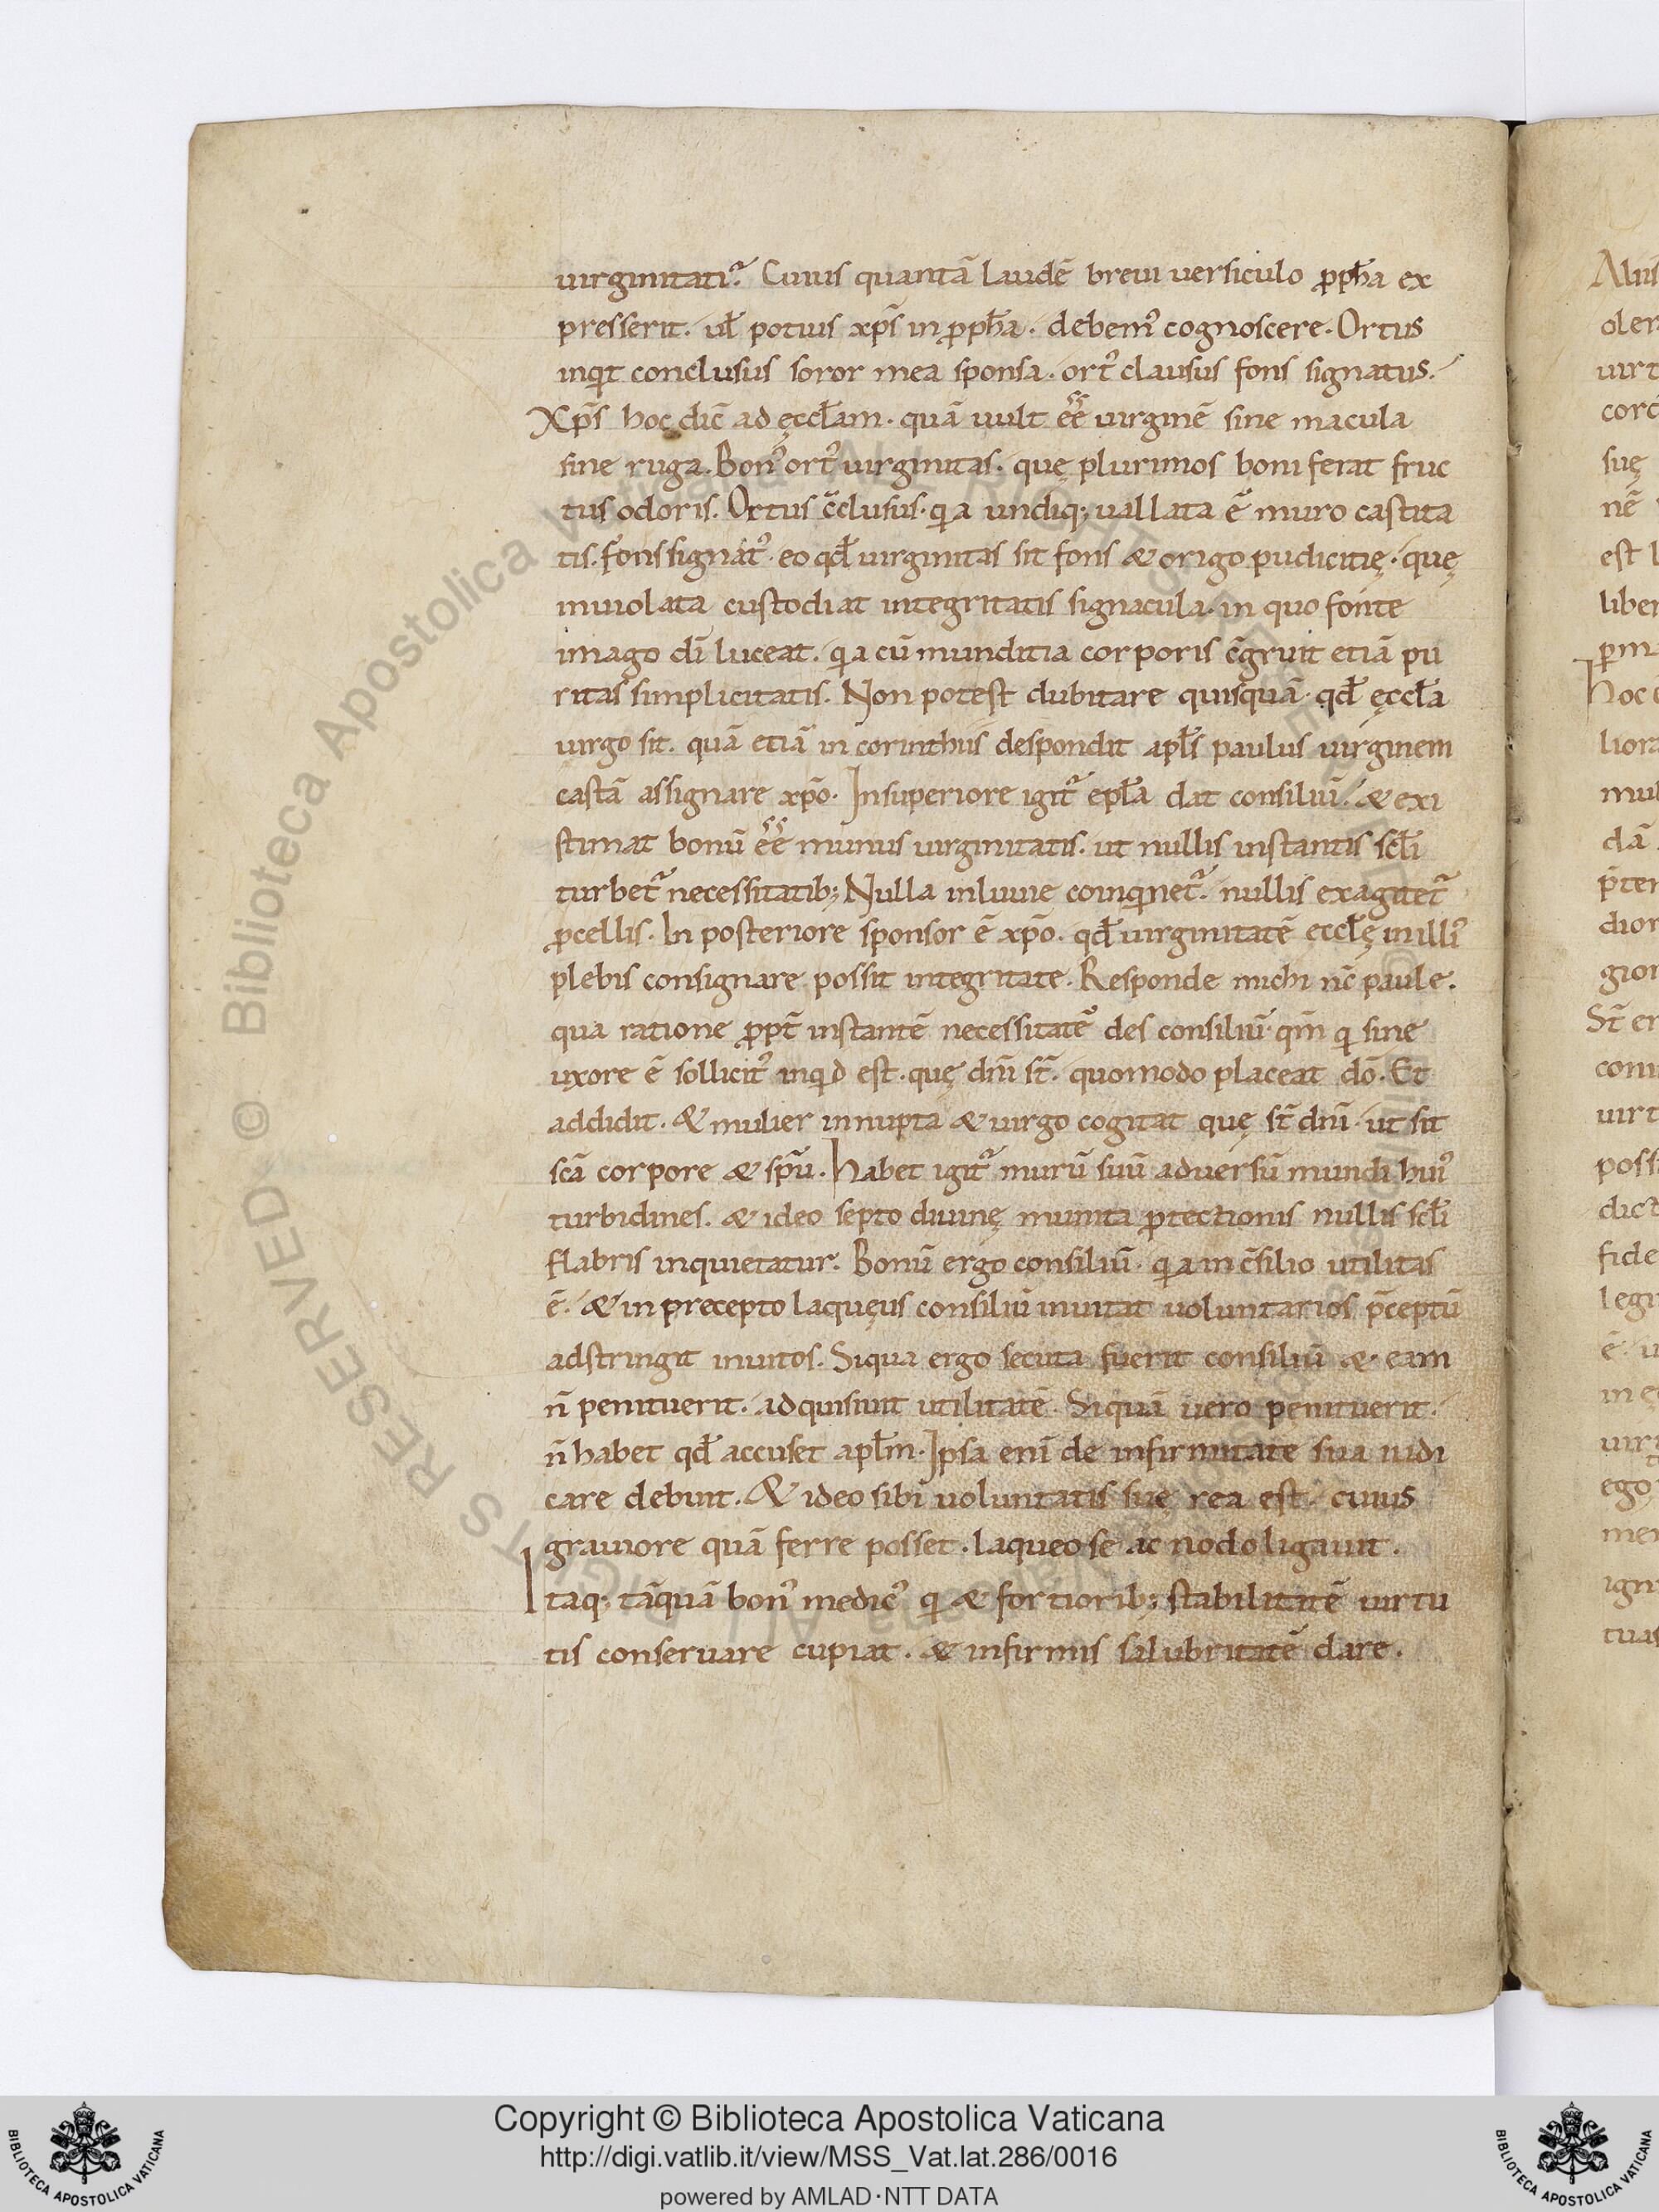 uirginitati᷑. Cuius quantā laudē breui uersiculo ꝓph̄a ex
presserit. ul̄ potius xp̄s in ꝓph̄a. debem᷒ cognoscere. Ortus
inqͥt conclusus soror mea sponsa. ort᷒ clausus fons signatus.
Xp̄s hoc dic̄ ad ęccl̄am. quā uult ee̅ uirginē sine macula
sine ruga. Bon᷒ ort᷒ uirginitas. quę plurimos boni ferat fruc
tus odoris. Ortus c̄clusus. qͥa undiq; uallata ē muro castita
tis. fons signat᷒. eo qd̄ uirginitas sit fons & origo pudicitię. quę
inuiolata custodiat integritatis signacula. in quo fonte
imago dī luceat. qͥa cū munditia corporis c̄gruit etiā pu
ritas simplicitatis. Non potest dubitare quisquā qd̄ ęccl̄a
uirgo sit. quā etiā in corinthiis despondit apl̄s paulus uirginem
castā assignare xp̄o. In superiore igit᷑ epl̄a dat consiliū. & exi
stimat bonū ee̅ munus uirginitatis. ut nullis instantis scl̄i
turbet᷑ necessitatib; Nulla inluuie coinqͥnet᷑. nullis exagitet᷑
ꝓcellis. In posteriore sponsor ē xp̄o. qd̄ uirginitatē ęccl̄ę in illi᷒
plebis consignare possit integritate. Responde michi nc̄ paule.
qua ratione ꝓpt̄ instantē necessitatē des consiliū. qm̄ qͥ sine
uxore ē sollicit᷒ inqͥd est. quę dn̄i st̄. quomodo placeat dō. Et
addidit. & mulier innupta & uirgo cogitat quę st̄ dn̄i. ut sit
scā corpore & sp̄u. Habet igit᷑ murū suū aduersū mundi hui᷒
turbidines. & ideo septo diuinę munita ꝓtectionis nullis scl̄i
flabris inquietatur. Bonū ergo consiliū. qͥa in c̄silio utilitas
ē. & in precepto laquęus consiliū inuitat uoluntarios p̄ceptū
adstringit inuitos. Siqua ergo secuta fuerit consiliū & eam
n̄ penituerit. adquisiuit utilitatē. Siquā uero penituerit.
n̄ habet qd̄ accuset apl̄m. Ipsa enī de infirmitate sua iudi
care debuit. & ideo sibi uoluntatis suę rea est. cuius
grauiore quā ferre posset. laqueo se ac nodo ligauit.
Itaq; tāquā bon᷒ medic᷒ qͥ & fortiorib; stabilitatē uirtu
tis conseruare cupiat. & infirmis salubritatē dare.
Copyright © Biblioteca Apostolica Vaticana
http://digi.vatlib.it/view/MSS_Vat.lat.286/0016
powered by AMLAD·NTT DATA
BIBLIOTECA APOSTOLICA VATICANA
BIBLIOTECA APOSTOLICA VATICANA